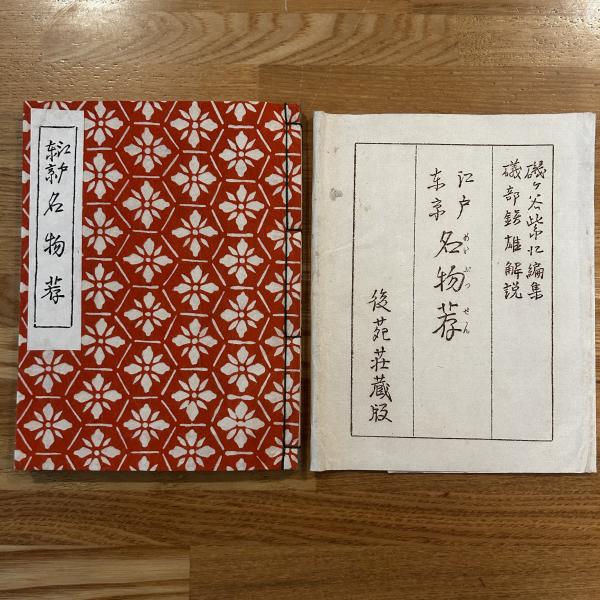 江戸
东京
名物荐
磯ヶ谷紫江編集
礒部鎮雄解説
江戸
东京
名物荐
めいぶつせん
後苑荘蔵版